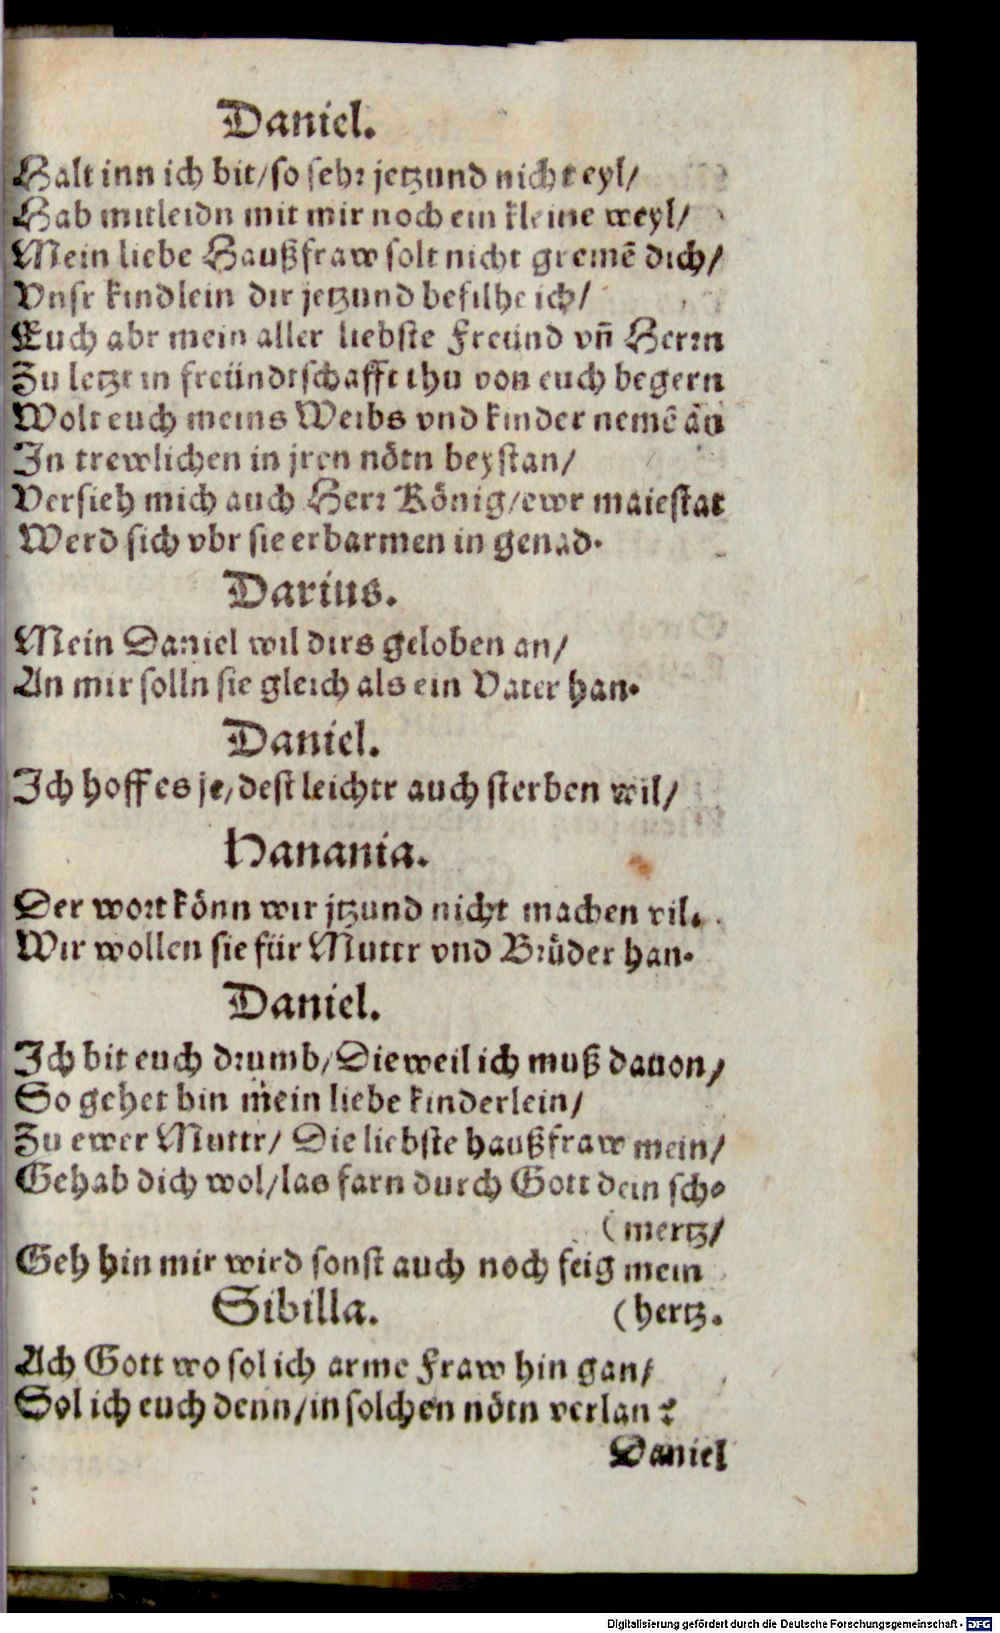 Daniel.
Halt inn ich bit/so sehr jetzund nicht eyl/
Hab mitleidn mit mir noch ein kleine weyl/
Mein liebe Haußfraw solt nicht gremẽ dich/
Vnsr kindlein dir jetzund befilhe ich/
Euch abr mein aller liebste Freünd vñ Herrn
Zu letzt in freündtschafft thu von euch begern
Wolt euch meins Weibs vnd kinder nemẽ an
In trewlichen in jren nötn beystan/
Versieh mich auch Herr König/ewr maiestat
Werd sich vbr sie erbarmen in genad.
Darius.
Mein Daniel wil dirs geloben an/
An mir solln sie gleich als ein Vater han.
Daniel.
Ich hoff es je/dest leichtr auch sterben wil/
Hanania.
Der wort könn wir jtzund nicht machen vil.
Wir wollen sie für Muttr vnd Brüder han.
Daniel.
Ich bit euch drumb/Dieweil ich muß dauon/
So gehet hin mein liebe kinderlein/
Zu ewer Muttr/ Die liebste haußfraw mein/
Gehab dich wol/las farn durch Gott dein sch⸗
(mertz/
Geh hin mir wird sonst auch noch feig mein
(hertz.
Sibilla.
Ach Gott wo sol ich arme Fraw hin gan/
Sol ich euch denn/in solchen nötn verlan?
Daniel
Digitalisierung gefördert durch die Deutsche Forschungsgemeinschaft - DFG